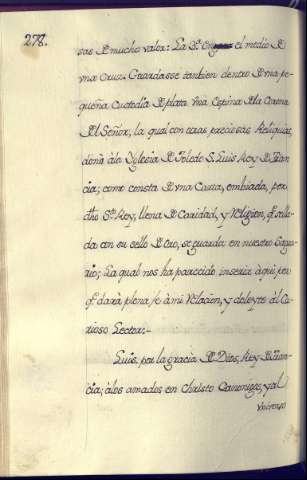 278.
sas de mucho valor: La 2ª en el medio de
vna Cruz. Guardasse tambien dentro de vna pe-
queña Custodia de plata vna Espina de la Corona
del Señor, la qual con otras preciosas Reliquias,
donò à la Yglesia de Toledo S. Luis Rey de Fran-
cia; como consta de vna Carta, embiada, por
dho Sto Rey, llena de Caridad, y Religion, q̃ sella-
da con su sello de Oro, se guarda en nuestro Sagra-
rio; La qual nos ha parecido inserir aqui, por
q̃ darà plena fe à mi Relacion, y deleyte al Cu-
rioso Lector.-
Luis, por la gracia de Dios, Rey de Fran-
cia; à los amados en Christo Canonigos, y al
vniverso